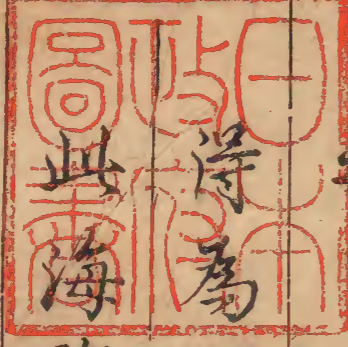 日本
政府
圖書
得為
此海